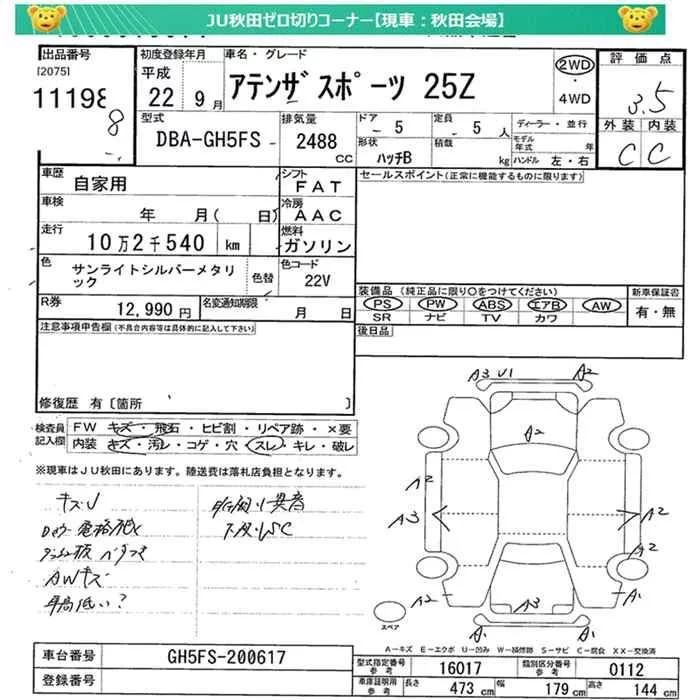 JU秋田ゼロ切りコーナー【現車：秋田会場】
出品番号
[2075]
11198
8
初度登録年月
平成
22 9月
車名・グレード
アテンザスポーツ 25Z
2WD
4WD
評価点
3.5
外装 内装
C C
型式
DBA-GH5FS
排気量
2488
CC
ドア
5
定員
5 人
形状
ハッチB
積載
kg
ディーラー・並行
モデル年式 年
ハンドル 左・右
車歴
自家用
シフト
FAT
車検
年 月( 日)
冷房
AAC
走行
10万2千540 km
燃料
ガソリン
色
サンライトシルバーメタリック
色替
色コード
22V
R券
12,990円
名変通知期限
月 日
セールスポイント(正常に機能するものに限ります)
装備品 (純正品に限り○をつけてください)
PS PW ABS エアB AW
SR ナビ TV カワ
新車保証書
有・無
後日品
注意事項申告欄(不具合内容等は具体的に記入して下さい)
修復歴 有〔箇所 〕
検査員記入欄
FW キズ・飛石・ヒビ割・リペア跡・×要
内装 キズ・汚レ・コゲ・穴・スレ・キレ・破レ
※現車はJU秋田にあります。陸送費は落札店負担となります。
キズU
ダッシュ板 ベタつき
AWキズ
車高低い?
下廻りSC
A3 U1 A2
A2
A2
A3
A2
A2
A2 A3 A1
A1 A1
スペア
A－キズ E－エクボ U－凹み W－補修跡 S－サビ C－腐食 XX－交換済
車台番号
GH5FS-200617
登録番号
型式指定番号
参考
16017
類別区分番号
参考
0112
車庫証明用
参考
長さ 473 cm
幅 179 cm
高さ 144 cm